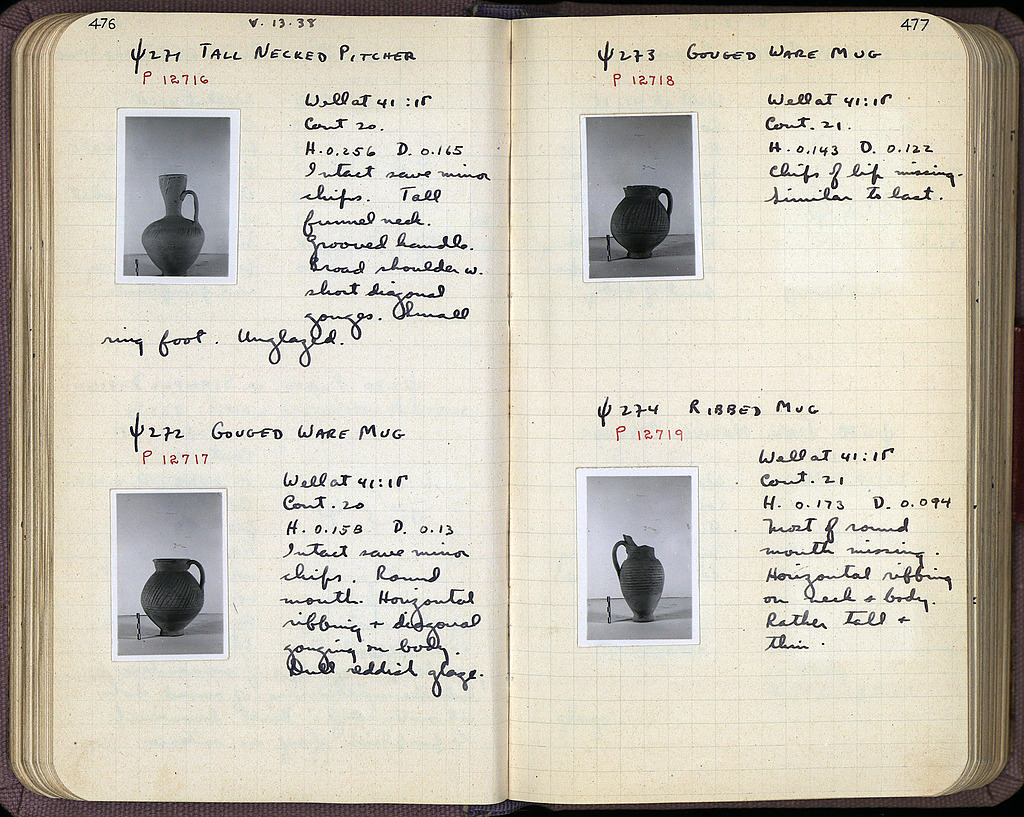 476
V. 13. 38
Ψ271 TALL NECKED PITCHER
P 12716
Well at 41:ΙΓ
Cont 20.
H. 0.256 D. 0.165
Intact save minor
chips. Tall
funnel neck.
Grooved handle.
Broad shoulder w.
short diagonal
gouges. Small
ring foot. Unglazed.
Ψ272 GOUGED WARE MUG
P 12717
Well at 41:ΙΓ
Cont. 20
H. 0.158 D. 0.13
Intact save minor
chips. Round
mouth. Horizontal
ribbing + diagonal
gouging on body.
Dull reddish glaze.
477
Ψ273 GOUGED WARE MUG
P 12718
Well at 41:ΙΓ
Cont. 21.
H. 0.143 D. 0.122
Chips of lip missing.
Similar to last.
Ψ274 RIBBED MUG
P 12719
Well at 41:ΙΓ
Cont. 21
H. 0.173 D. 0.094
Most of round
mouth missing.
Horizontal ribbing
on neck + body.
Rather tall +
thin.